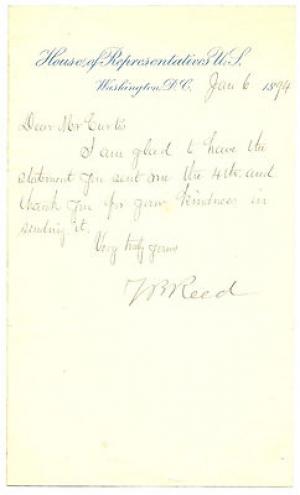 House of Representatives U.S.
Washington, D.C. Jan 6 1894
Dear Mr Curtis
I am glad to have the
statement you sent me the 4th. and
thank you for your kindness in
sending it.
Very truly yours
T B Reed